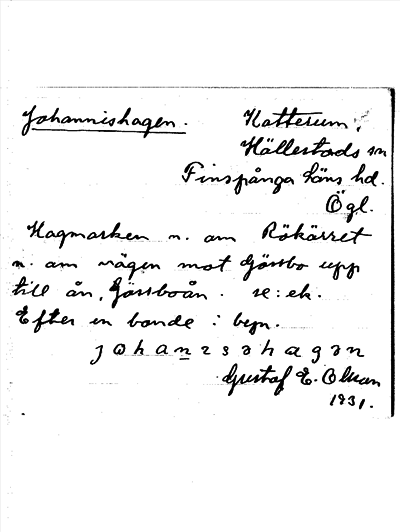 Johannishagen. Katterum,
Hällestads sn
Finspånga läns hd.
Ögl.
Hagmarken n. om Rökärret
n. om vägen mot Gässbo upp
till ån, Gässboån. se: ek.
Efter en bonde i byn.
Gustaf E. Olsson
1931.